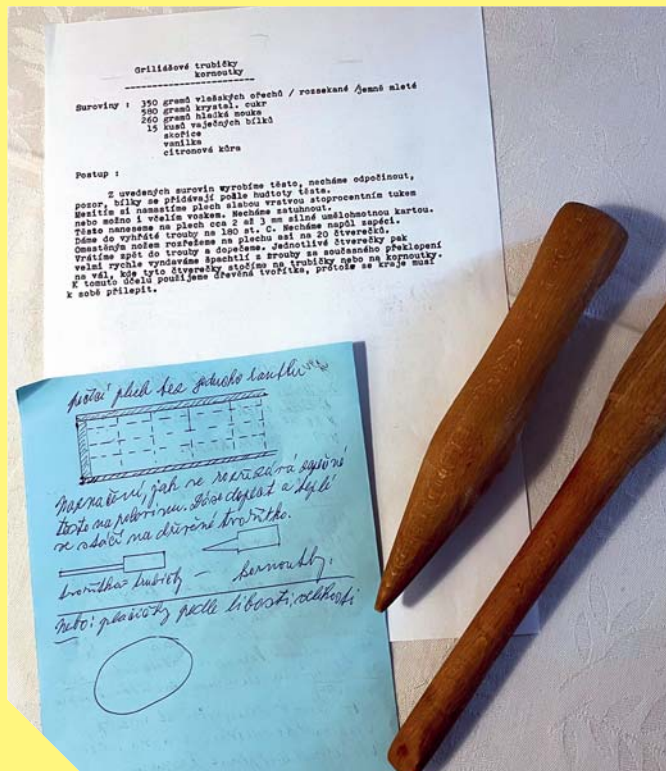 Griliášové trubičky
kornoutky
Suroviny : 350 gramů vlašských ořechů / rozsekané /jemně mleté
580 gramů krystal. cukr
260 gramů hladká mouka
15 kusů vaječných bílků
skořice
vanilka
citronová kůra
Postup :
Z uvedených surovin vyrobíme těsto, necháme odpočinout,
pozor, bílky se přidávají podle hudtoty těsta.
Mezitím si namastíme plech slabou vrstvou stoprocentním tukem
nebo možno i včelím voskem. Necháme zatuhnout.
Těsto naneseme na plech cca 2 až 3 mm silné umělohmotnou kartou.
Dáme do vyhřáté trouby na 180 st. C. Necháme napůl zapéci.
Omastěným nožem rozřežeme na plechu asi na 20 čtverečků.
Vrátíme zpět do trouby a dopečeme. Jednotlivé čtverečky pak
velmi rychle vyndaváme špachtlí z trouby za současného překlopení
na vál, kde tyto čtverečky stočíme na trubičky nebo na kornoutky.
K tomuto účelu použijeme dřevěná tvořítka, protože se kraje musí
k sobě přilepit.
plech bez jednoho
naznačení, jak se zapečené
těsto na polovinu. a teplé
se stáčí na dřevěné tvořítko.
tvořítka= trubičky — kornoutky.
nebo: placičky podle libosti, velikosti